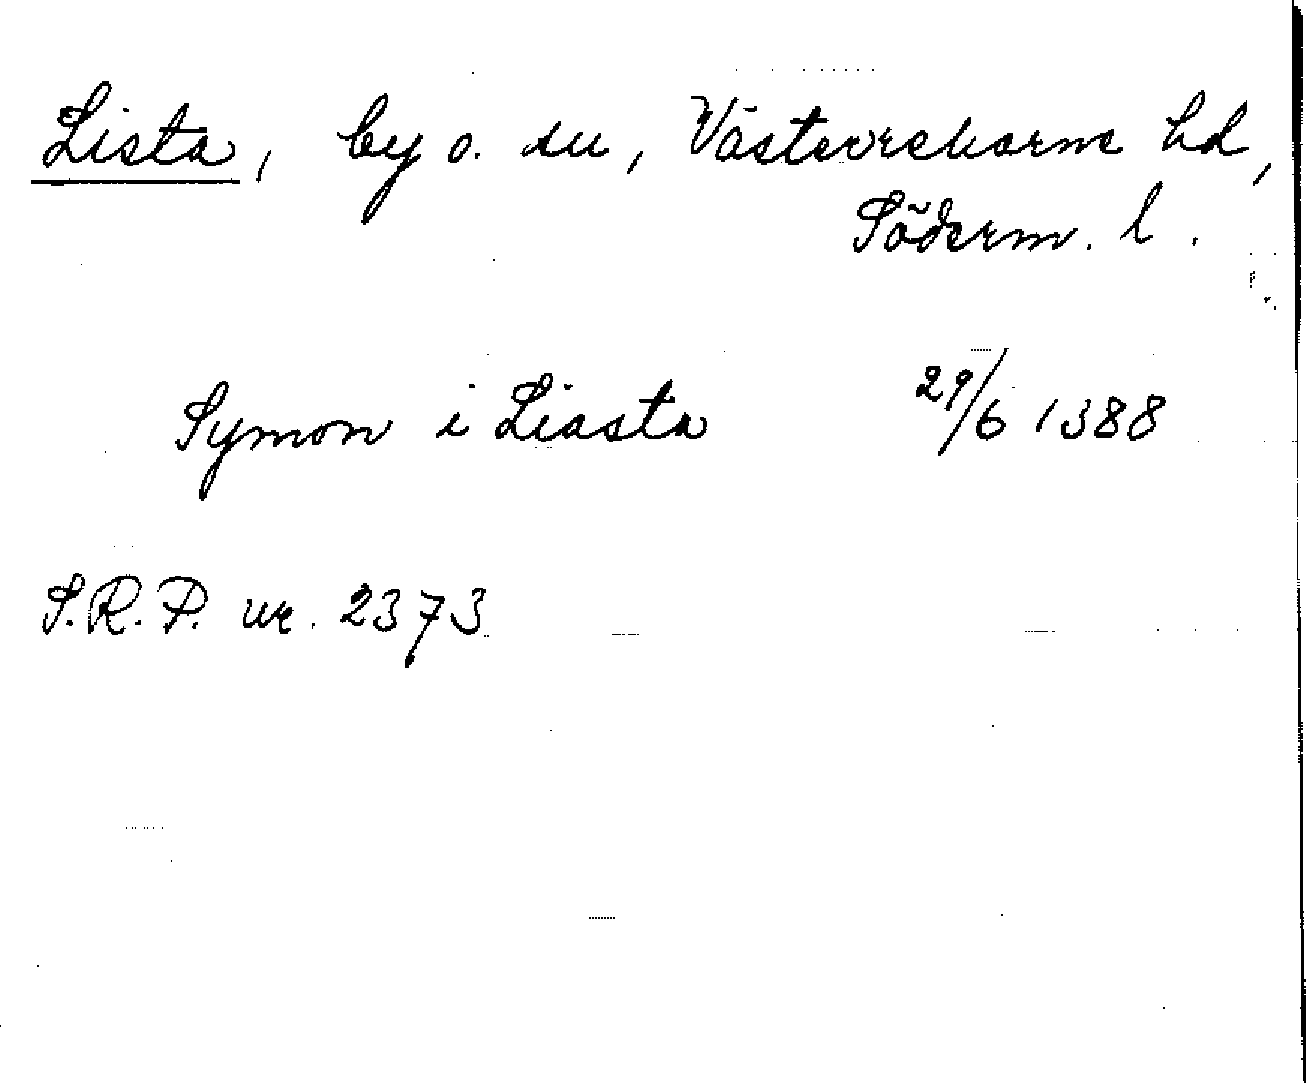 Lista, by o. sn, Västerrekarne hd,
Söderm. l.
Symon i Liasta 29/6 1388
S.R.P. nr. 2373